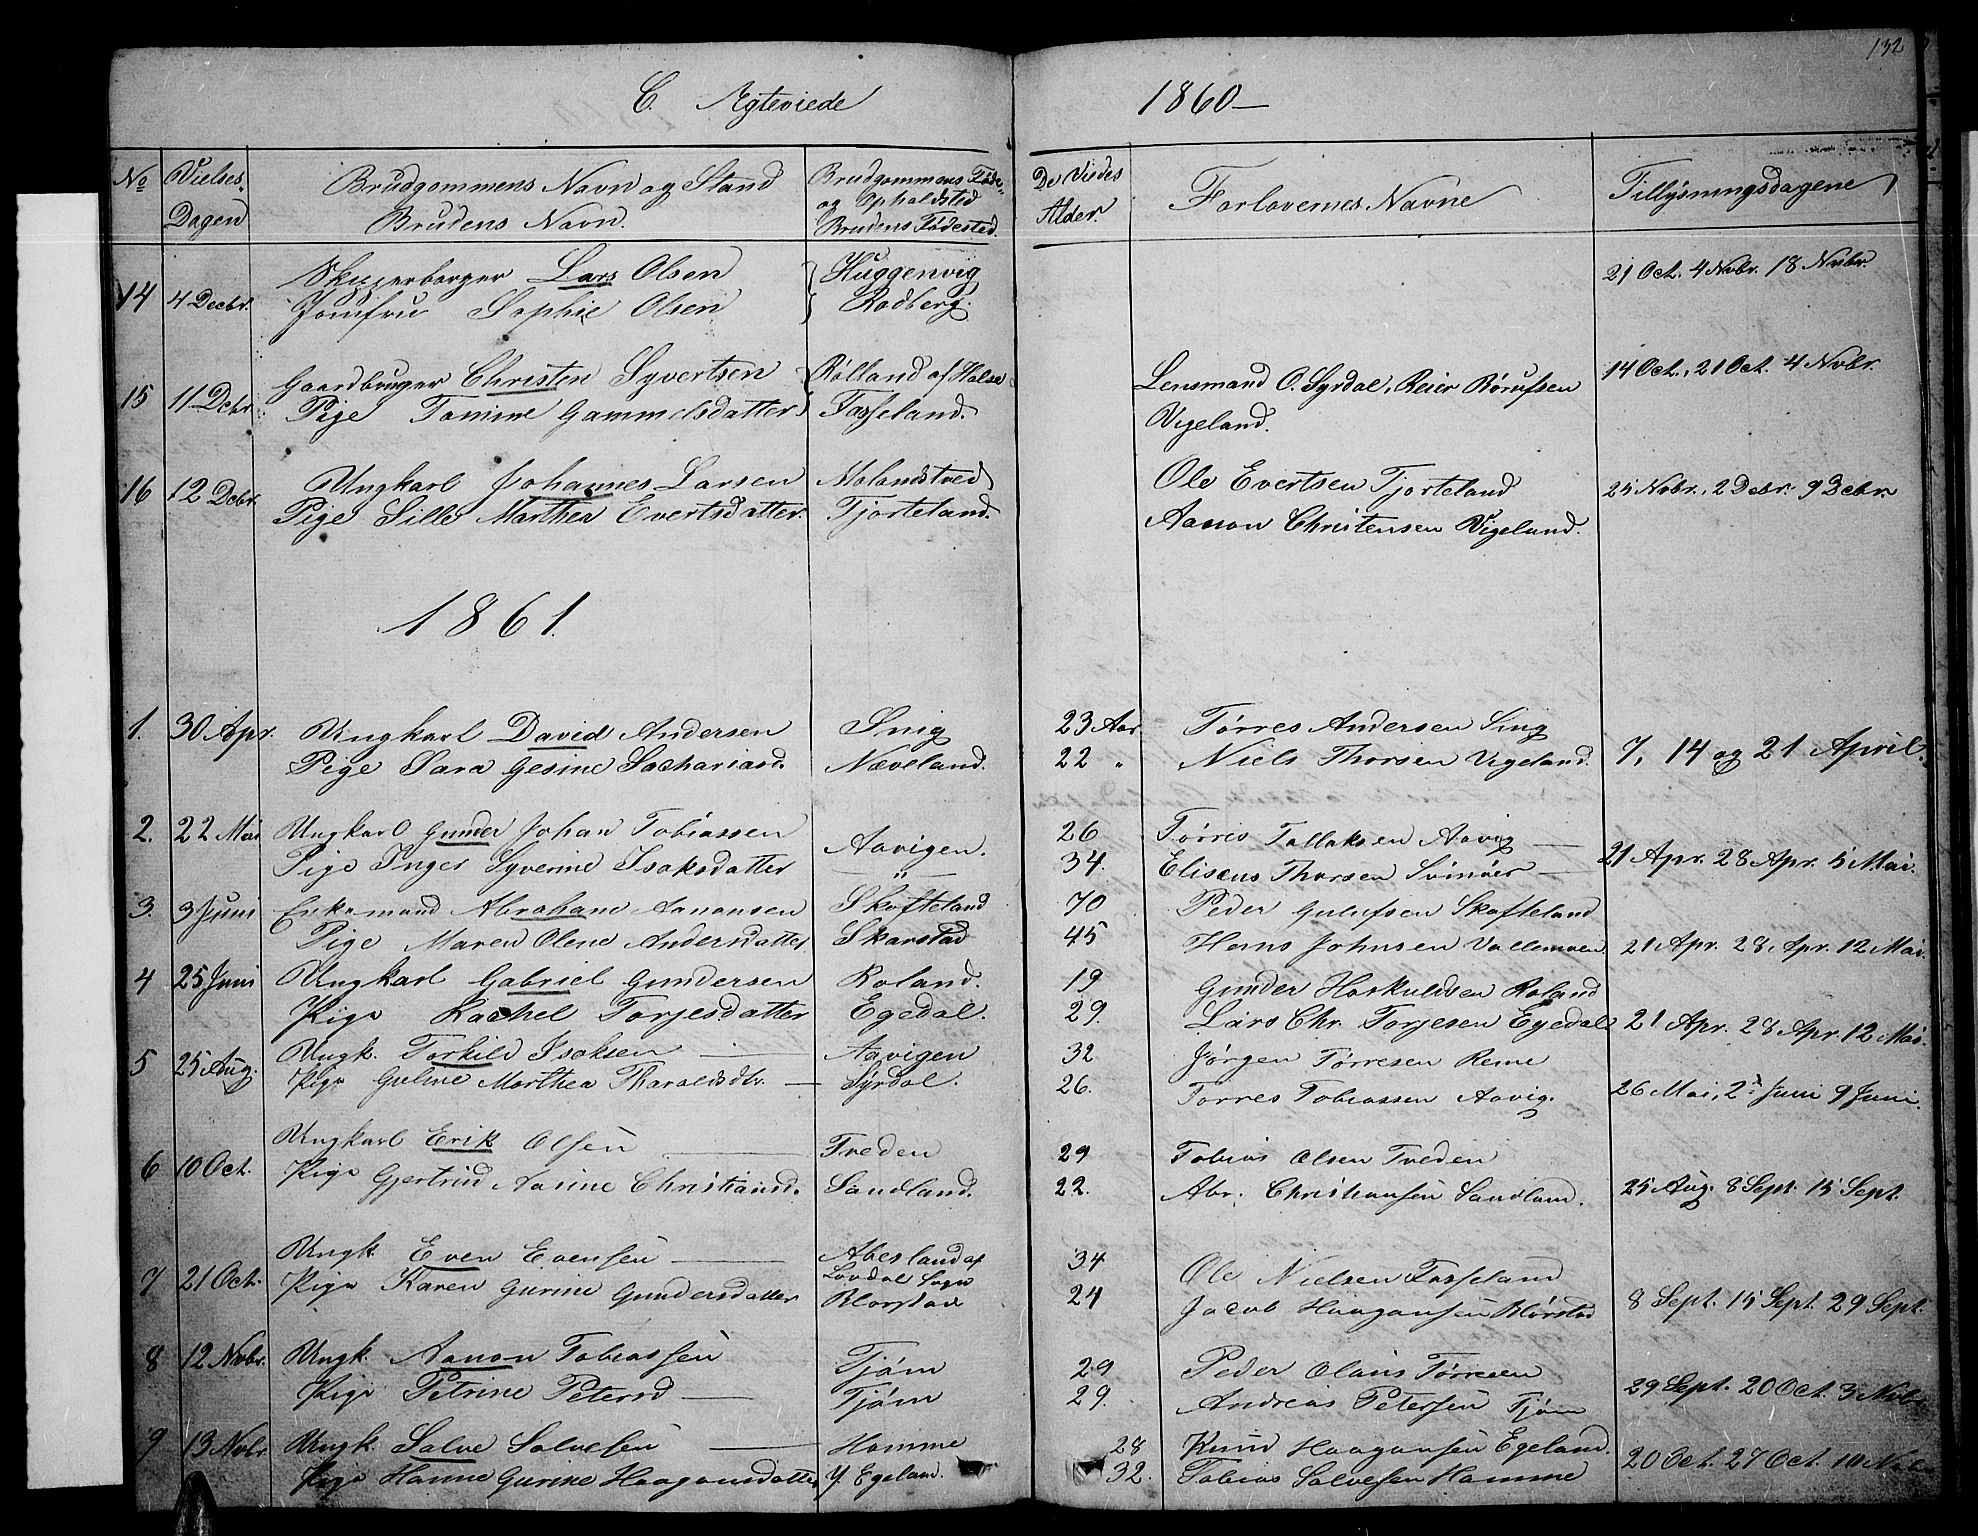 132
C. Ægteviede 1860—
No Vielses-Dagen Brudgommens Navn og Stand Brudens Navn. Brudgommens Føde- og Opholdsted Brudens Fødested. De Viedes Alder. Forlovernes Navne Tillysningsdagene
14 4 Decbr. Skipperborger Lars Olsen Huggenvig 21 Oct. 4 Nvbr. 18 Nvbr.
Jomfru Sophie Olsen Rodberg.
15 11 Dcbr. Gaardbruger Christen Syvertsen Rølland af Halse Lensmand O. Syrdal, Reier Rørufsen 14 Oct., 21 Oct. 4 Nvbr.
Pige Tomine Gammelsdatter Fasseland. Vigeland.
16 12 Dcbr. Ungkarl Johannes Larsen Molandstved Ole Evertsen Tjorteland 25 Nvbr., 2 Dcbr. 9 Dcbr.
Pige Sille Marthea Evertsdatter. Tjorteland. Aanon Christensen Vigeland.
1861.
1. 30 Apr. Ungkarl David Andersen Snig 23 Aar Tørres Andersen Snig
Pige Sara Gesine Sachariasd. Næveland. 22 " Niels Thorsen Vigeland. 7, 14 og 21 April.
2. 22 Mai Ungkarl Gunder Johan Tobiassen Aavigen. 26 Tørres Tallaksen Aavig
Pige Inger Syverine Isaksdatter — " — 34. Eliseus Thorsen Svinøer 21 Apr. 28 Apr. 5 Mai.
3. 3 Juni Enkemand Abraham Aanonsen Skofteland 70 Peder Gulufsen Skofteland
Pige Maren Olene Andersdatter Skarstad 45 Hans Johnsen Vallemoen 21 Apr. 28 Apr. 12 Mai.
4 25 Juni Ungkarl Gabriel Gundersen Roland. 19 Gunder Haskuldsen Roland
Pige Rachel Torjesdatter Egedal. 29. Lars Chr. Torjesen Egedal 21 Apr. 28 Apr. 12 Mai.
5 25 Aug. Ungk. Torkild Isaksen Aavigen 32 Jørgen Tørresen Reme
Pige Guline Marthea Tharaldsdtr. Syrdal. 26. Tørres Tobiassen Aavig. 26 Mai, 2d Juni 9 Juni.
6 10 Oct. Ungkarl Erik Olsen Tveden 29 Tobias Olsen Tveden
Pige Gjertrud Aasine Christiansd. Sandland. 22. Abr. Christiansen Sandland. 25 Aug. 8 Sept. 15 Sept.
7 21 Oct. Ungk. Even Evensen Abesland af Løvdal Sogn 34 Ole Nielsen Fasseland
Pige Karen Gurine Gundersdatter Blørstad 24 Jacob Haagansen Blørstad 8 Sept. 15 Sept. 29 Sept.
8 12 Nvbr. Ungk. Aanon Tobiassen Tjøm 29 Peder Olaus Tørresen
Pige Petrine Petersd Tjøm 29. Andreas Petersen Tjøm 29 Sept. 20 Oct. 3 Nvbr
9 13 Nvbr. Ungk. Salve Salvesen Homme 28 Knud Haagansen Egeland.
Pige Hanne Gurine Haagansdatter Y. Egeland. 32. Tobias Salvesen Homme 20 Oct. 27 Oct. 10 Nvbr